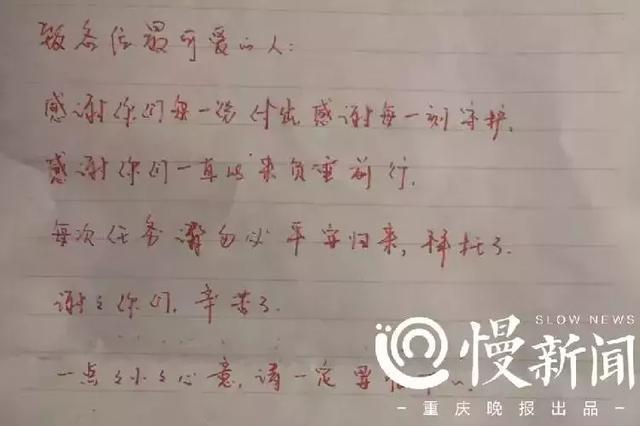 致各位最可爱的人：
感谢你们每一份付出，感谢每一刻守护，
感谢你们一直以来负重前行，
每次任务请务必平安归来，拜托了。
谢谢你们，辛苦了。
一点点小小心意，请一定要收下
SLOW NEWS
慢新闻
重庆晚报出品